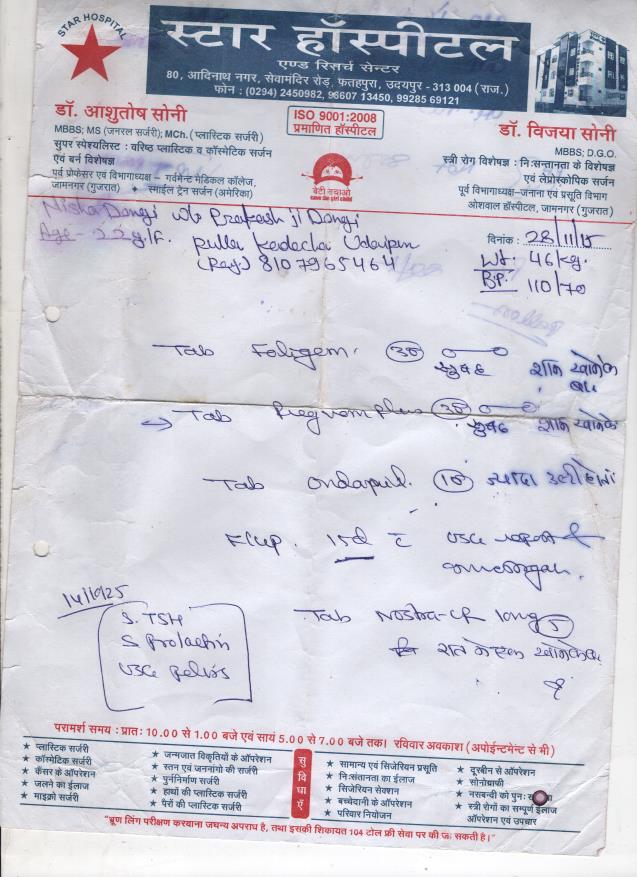 STAR HOSPITAL
स्टार हॉस्पीटल
एण्ड रिसर्च सेन्टर
80, आदिनाथ नगर, सेवामंदिर रोड़, फतहपुरा, उदयपुर - 313 004 (राज.)
फोन : (0294) 2450982, 96607 13450, 99285 69121
डॉ. आशुतोष सोनी
MBBS; MS (जनरल सर्जरी); MCh. (प्लास्टिक सर्जरी)
सुपर स्पेश्यलिस्ट : वरिष्ठ प्लास्टिक व कॉस्मेटिक सर्जन
एवं बर्न विशेषज्ञ
पूर्व प्रोफेसर एवं विभागाध्यक्ष - गवर्नमेंट मेडिकल कॉलेज,
जामनगर (गुजरात) स्माईल ट्रेन सर्जन (अमेरिका)
ISO 9001:2008
प्रमाणित हॉस्पीटल
बेटी बचाओ
save the girl child
डॉ. विजया सोनी
MBBS; D.G.O.
स्त्री रोग विशेषज्ञ : निःसन्तानता के विशेषज्ञ
एवं लेप्रोस्कोपिक सर्जन
पूर्व विभागाध्यक्ष-जनाना एवं प्रसूति विभाग
ओशवाल हॉस्पीटल, जामनगर (गुजरात)
Nisha Dangi w/o Prakash ji Dangi
Age - 22y/F.
Udaipur
8107965464
दिनांक : 28/11/15
Wt. 46 kg.
B.P. 110/70
Tab Foligem. 30
सुबह शाम खाने के बाद
Tab 30
सुबह शाम खाने के
Tab 10 ज्यादा उल्टी होना
15d USG report
Tab long 5
रात को एक
S. TSH
S Prolactin
USG Pelvis
परामर्श समय : प्रातः 10.00 से 1.00 बजे एवं सायं 5.00 से 7.00 बजे तक। रविवार अवकाश (अपोईन्टमेन्ट से भी)
★ प्लास्टिक सर्जरी
★ कॉस्मेटिक सर्जरी
★ कैंसर के ऑपरेशन
★ जलने का ईलाज
★ माइक्रो सर्जरी
★ जन्मजात विकृतियों के ऑपरेशन
★ स्तन एवं जननांगो की सर्जरी
★ पुर्ननिर्माण सर्जरी
★ हाथों की प्लास्टिक सर्जरी
★ पैरों की प्लास्टिक सर्जरी
सुविधाएँ
★ सामान्य एवं सिजेरियन प्रसूति
★ निःसंतानता का ईलाज
★ सिजेरियन सेक्शन
★ बच्चेदानी के ऑपरेशन
★ परिवार नियोजन
★ दूरबीन से ऑपरेशन
★ सोनोग्राफी
★ नसबन्दी को पुनः
★ स्त्री रोगों का सम्पूर्ण ईलाज
ऑपरेशन एवं उपचार
"भ्रूण लिंग परीक्षण करवाना जघन्य अपराध है, तथा इसकी शिकायत 104 टोल फ्री सेवा पर की जा सकती है।"